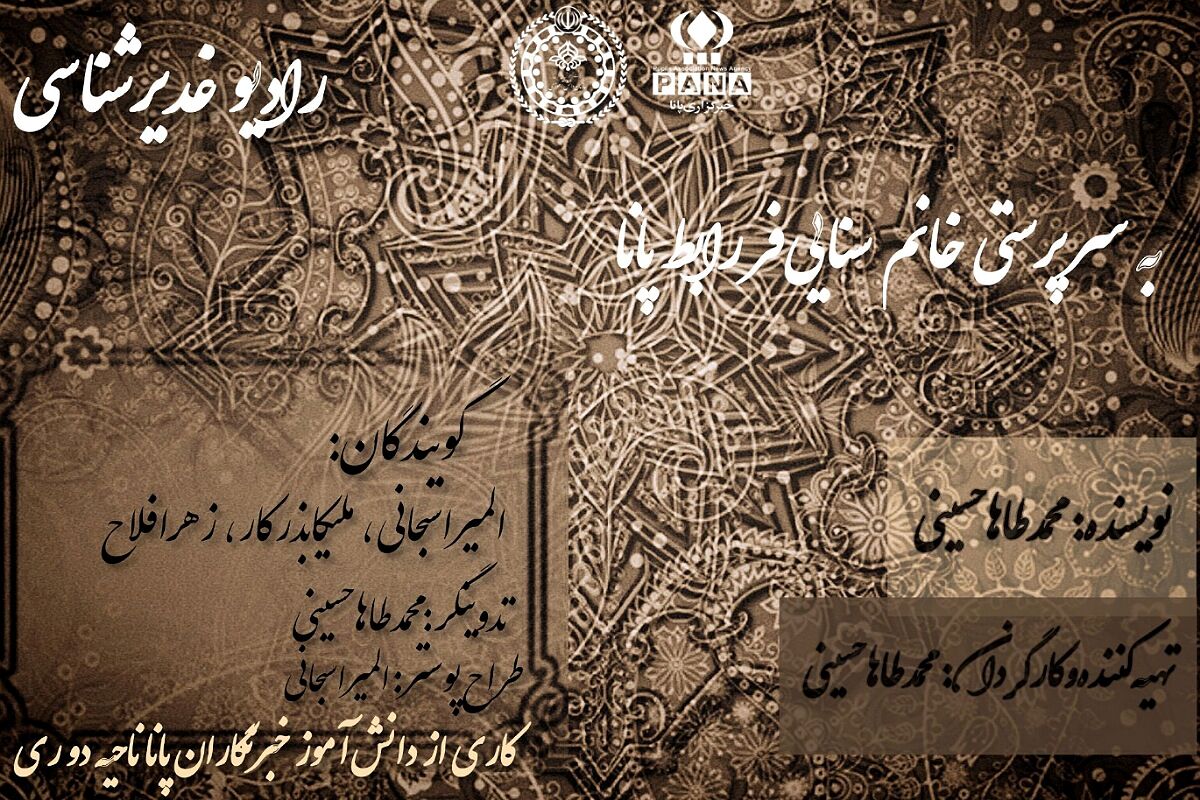 رادیو غدیرشناسی
Pupils Association News Agency
PANA
خبرگزاری پانا
به سرپرستی خانم سنایی‌فر رابط پانا
گویندگان:
المیرا سبحانی، ملیکا بذرکار، زهرا فلاح
تدوینگر: محمد طاها حسینی
طراح پوستر: المیرا سبحانی
کاری از دانش آموز خبرنگاران پانا ناحیه دو ری
نویسنده: محمد طاها حسینی
تهیه کننده و کارگردان: محمد طاها حسینی